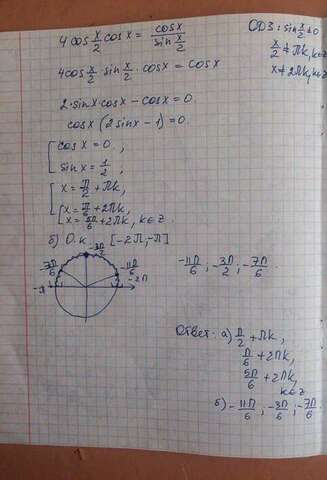 4 cos x/2 cos x = cos x / sin x/2
ОДЗ: sin x/2 ≠ 0
x/2 ≠ Πk, k∈Z
x ≠ 2Πk, k∈Z
4 cos x/2 sin x/2 · cos x = cos x
2 · sin x cos x − cos x = 0
cos x (2 sin x − 1) = 0
[ cos x = 0 ,
sin x = 1/2 ,
[ x = Π/2 + Πk,
[ x = Π/6 + 2Πk,
x = 5Π/6 + 2Πk, k∈Z
б) О.К. [−2Π, −Π]
−3Π/2
−7Π/6
−11Π/6
−Π
−2Π
−11Π/6 ; −3Π/2 ; −7Π/6
Ответ: а) Π/2 + Πk ,
Π/6 + 2Πk,
5Π/6 + 2Πk,
k∈Z
б) −11Π/6 ; −3Π/6 ; −7Π/6